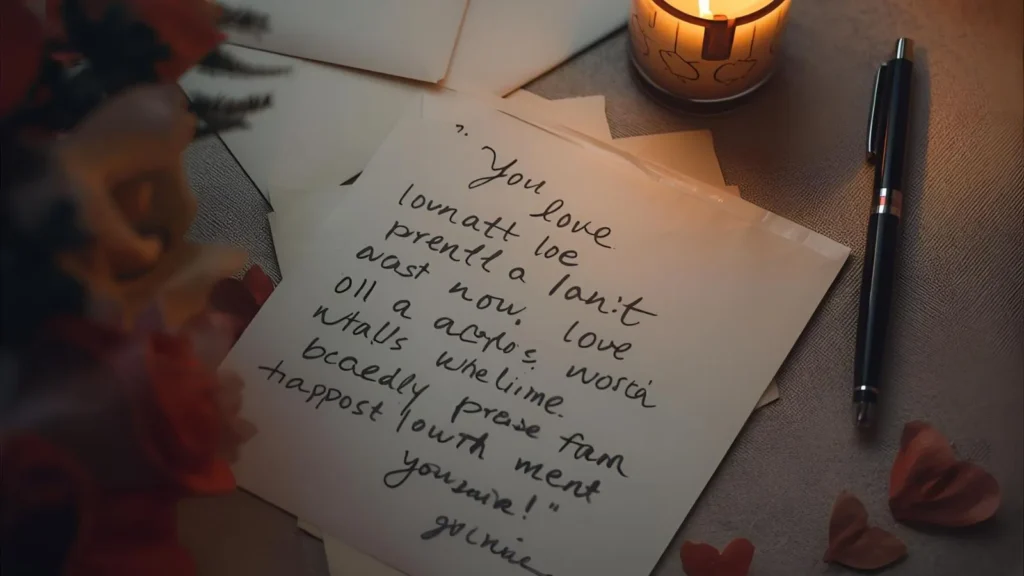 ". You love
lovnatt loe
prentl a lan't
avast now. love
oll a acylos, worsci
ntalls wheliime.
bcaedly prease fam
happost louth ment
yousaie!"